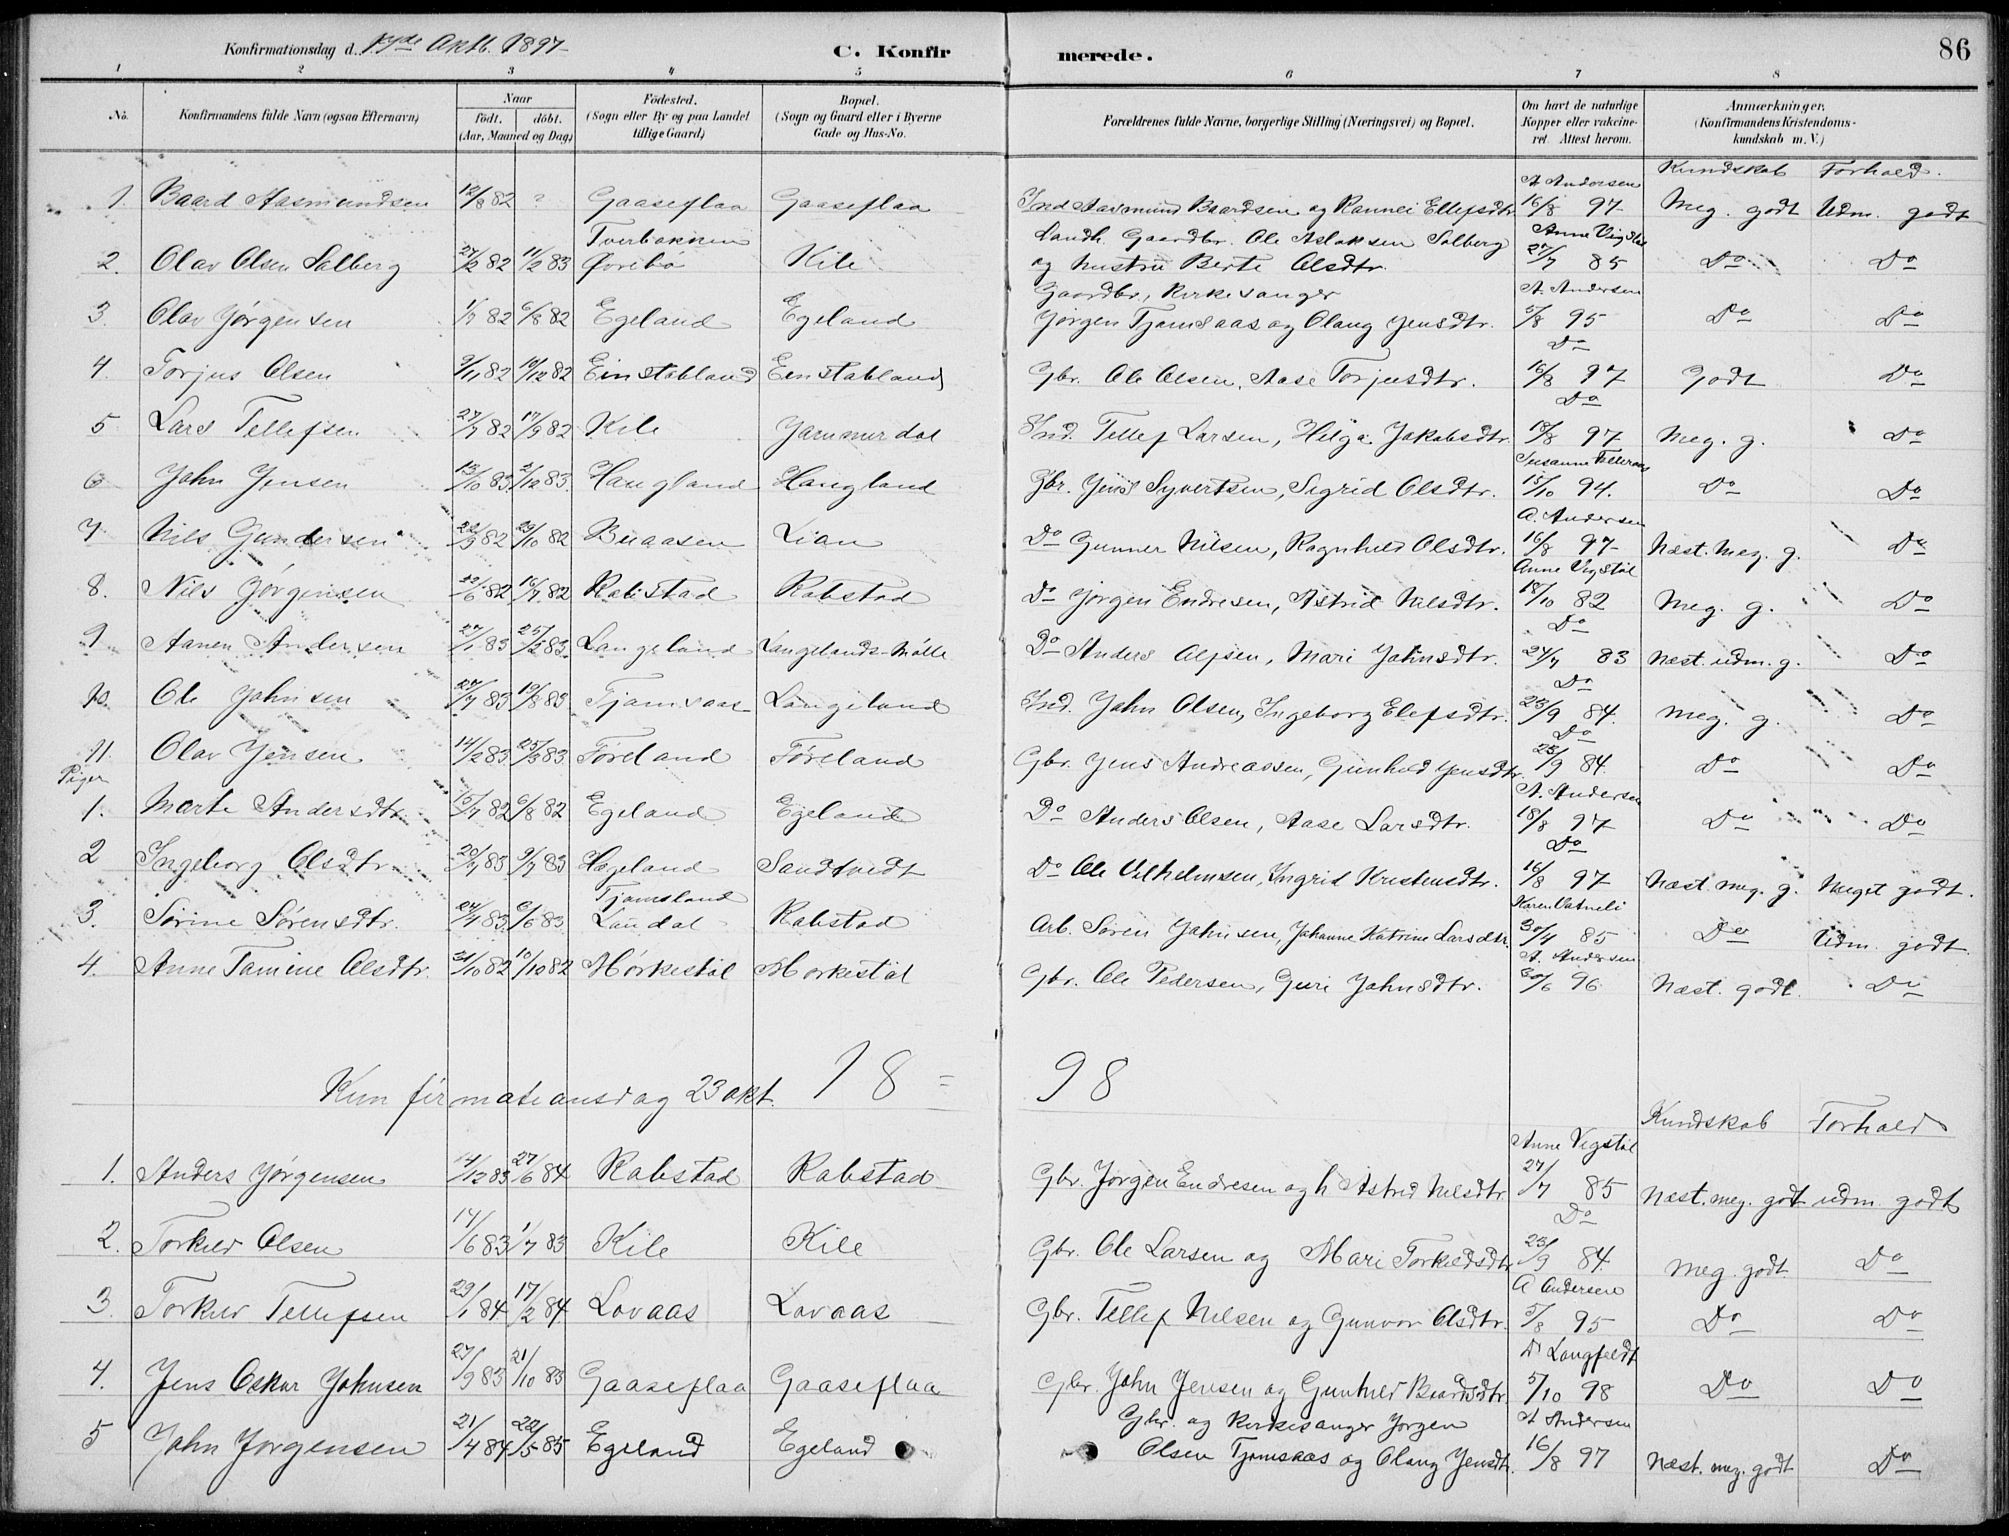 Konfirmationsdag d. Oktb. 1897
C. Konfir merede. 86
1 2 3 4 5 6 7 8
No. Konfirmandens fulde Navn (ogsaa Efternavn) Naar født. døbt. (Aar, Maaned og Dag) Fødested. (Sogn eller By og paa Landet tillige Gaard) Bopæl. (Sogn og Gaard eller i Byerne Gade og Hus-No. Forældrenes fulde Navne, borgerlige Stilling (Næringsvei) og Bopæl. Om havt de naturlige Kopper eller vakcineret. Attest herom. Anmærkninger, (Konfirmandens Kristendomskundskab m. V.)
Kundskab Forhold.
1. Baard Aasmundsen 12/8 82 ? Gaaseflaa Gaaseflaa Ind Aasmund Baardsen og Rannei Ellefsdtr. A Andersen 16/8 97 Meg. godt Udm. godt
2. Olav Olsen Solberg 27/2 82 11/2 83 Tverbakken Øvrebø Kile Landh. Gaardbr. Ole Aslaksen Solberg og hustru Berte Olsdtr. Anne Vigstøl 27/7 85 Do Do
3. Olav Jørgensen 1/7 82 6/8 82 Egeland Egeland Gaardbr., Kirkesanger Jørgen Tjomsaas og Olaug Jensdtr. A. Andersen 5/8 95 Do Do
4. Torjus Olsen 9/11 82 10/12 82 Einstabland Einstabland Gbr. Ole Olsen, Aase Torjusdtr. Do 16/8 97 Godt Do
5. Lars Tellefsen 27/7 82 17/9 82 Kile Jammerdal Ind. Tellef Larsen, Helga Jakobsdtr. Do 18/8 97 Meg. g. Do
6 John Jensen 13/10 83 2/12 83 Haugland Haugland Gbr. Jens Syvertsen, Sigrid Olsdtr. Susanne 15/10 94. Do Do
7. Nils Gundersen 22/9 82 29/10 82 Buaasen Lian Do Gunner Nilsen, Ragnhild Olsdtr. A. Andersen 16/8 97 Næst. meg. g. Do
8. Nils Jørgensen 22/6 82 16/7 82 Rabstad Rabstad Do Jørgen Endresen, Astrid Nilsdtr. Anne Vigstøl 18/10 82 Meg. g. Do
9 Aanen Andersen 27/1 83 25/3 83 Langeland Langelands-Mølle Do Anders Olsen, Mari Johnsdtr. Do 24/7 83 Næst. udm. g. Do
10. Ole Johnsen 27/7 83 19/8 83 Tjomsaas Langeland Ind. John Olsen, Ingeborg Elefsdtr. Do 23/9 84. Meg. g. Do
11 Olav Jensen 14/2 83 25/3 83 Føreland Føreland Gbr. Jens Andreassen, Gunhild Jensdtr. Do 23/9 84. Do Do
Piger
1. Marte Andersdtr. 15/7 82 6/8 82 Egeland Egeland Do Anders Olsen, Aase Larsdtr. A. Andersen 18/8 97 Do Do
2 Ingeborg Olsdtr. 20/7 83 9/7 83 Hageland Sandtvedt Do Ole Vilhelmsen, Ingrid Kristensdtr. Do 16/8 97 Næst. meg. g. Meget godt.
3. Sørine Sørensdtr. 24/4 83 6/6 83 Tjomsland Laudal Rabstad Arb. Søren Johnsen, Johanne Katrine Larsdtr. Karen Vatneli 30/4 85 Do Udm. godt.
4. Anne Tamine Olsdtr. 31/10 82 10/12 82 Mørkestøl Mørkestøl Gbr. Ole Pedersen, Guri Johnsdtr. A. Andersen 30/6 96. Næst. godt. Do
Kunfirmatiansdag 23 okt. 18= 98
Kundskab Forhold
1. Anders Jørgensen 14/12 83 27/6 84 Rabstad Rabstad Gbr. Jørgen Endresen og h Astrid Nilsdtr. Anne Vigstøl 27/7 85 Næst. meg. godt udm. godt
2. Torkild Olsen 14/6 83 1/7 83 Kile Kile Gbr. Ole Larsen og Mari Torkildsdtr. Do 23/9 84. Meg. godt Do
3. Torkild Tellefsen 29/1 84 17/2 84 Lovaas Lovaas Gbr. Tellef Nilsen og Gunvor Olsdtr. A Andersen 5/8 95 Do Do
4. Jens Oskar Johnsen 27/9 83 21/10 83 Gaaseflaa Gaaseflaa Gbr. John Jensen og Gunhild Baardsdtr. Dr Langfeldt 5/10 98 Do Do
5 John Jørgensen 21/4 84 22/5 85 Egeland Egeland Gbr. og Kirkesanger Jørgen Olsen Tjomsaas og Olaug Jensdtr. A Andersen 16/8 97 Næst. meg. godt Do